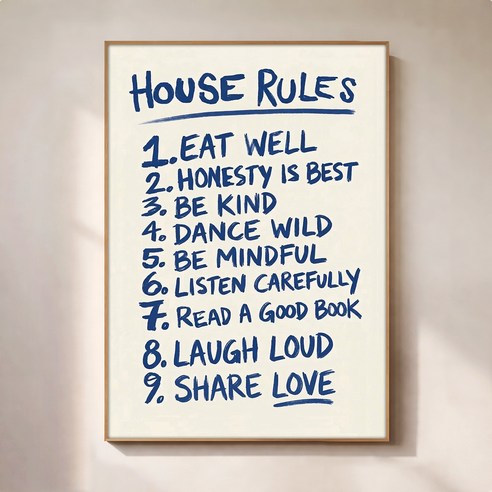 HOUSE RULES
1. EAT WELL
2. HONESTY IS BEST
3. BE KIND
4. DANCE WILD
5. BE MINDFUL
6. LISTEN CAREFULLY
7. READ A GOOD BOOK
8. LAUGH LOUD
9. SHARE LOVE